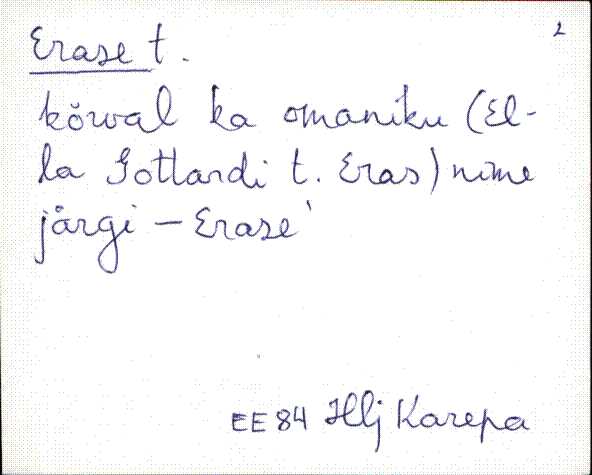 2
Erase t.
kõrval ka omaniku (El-
la Gotlardi t. Eras) nime
järgi – Erase'
EE 84 Hlj Karepa